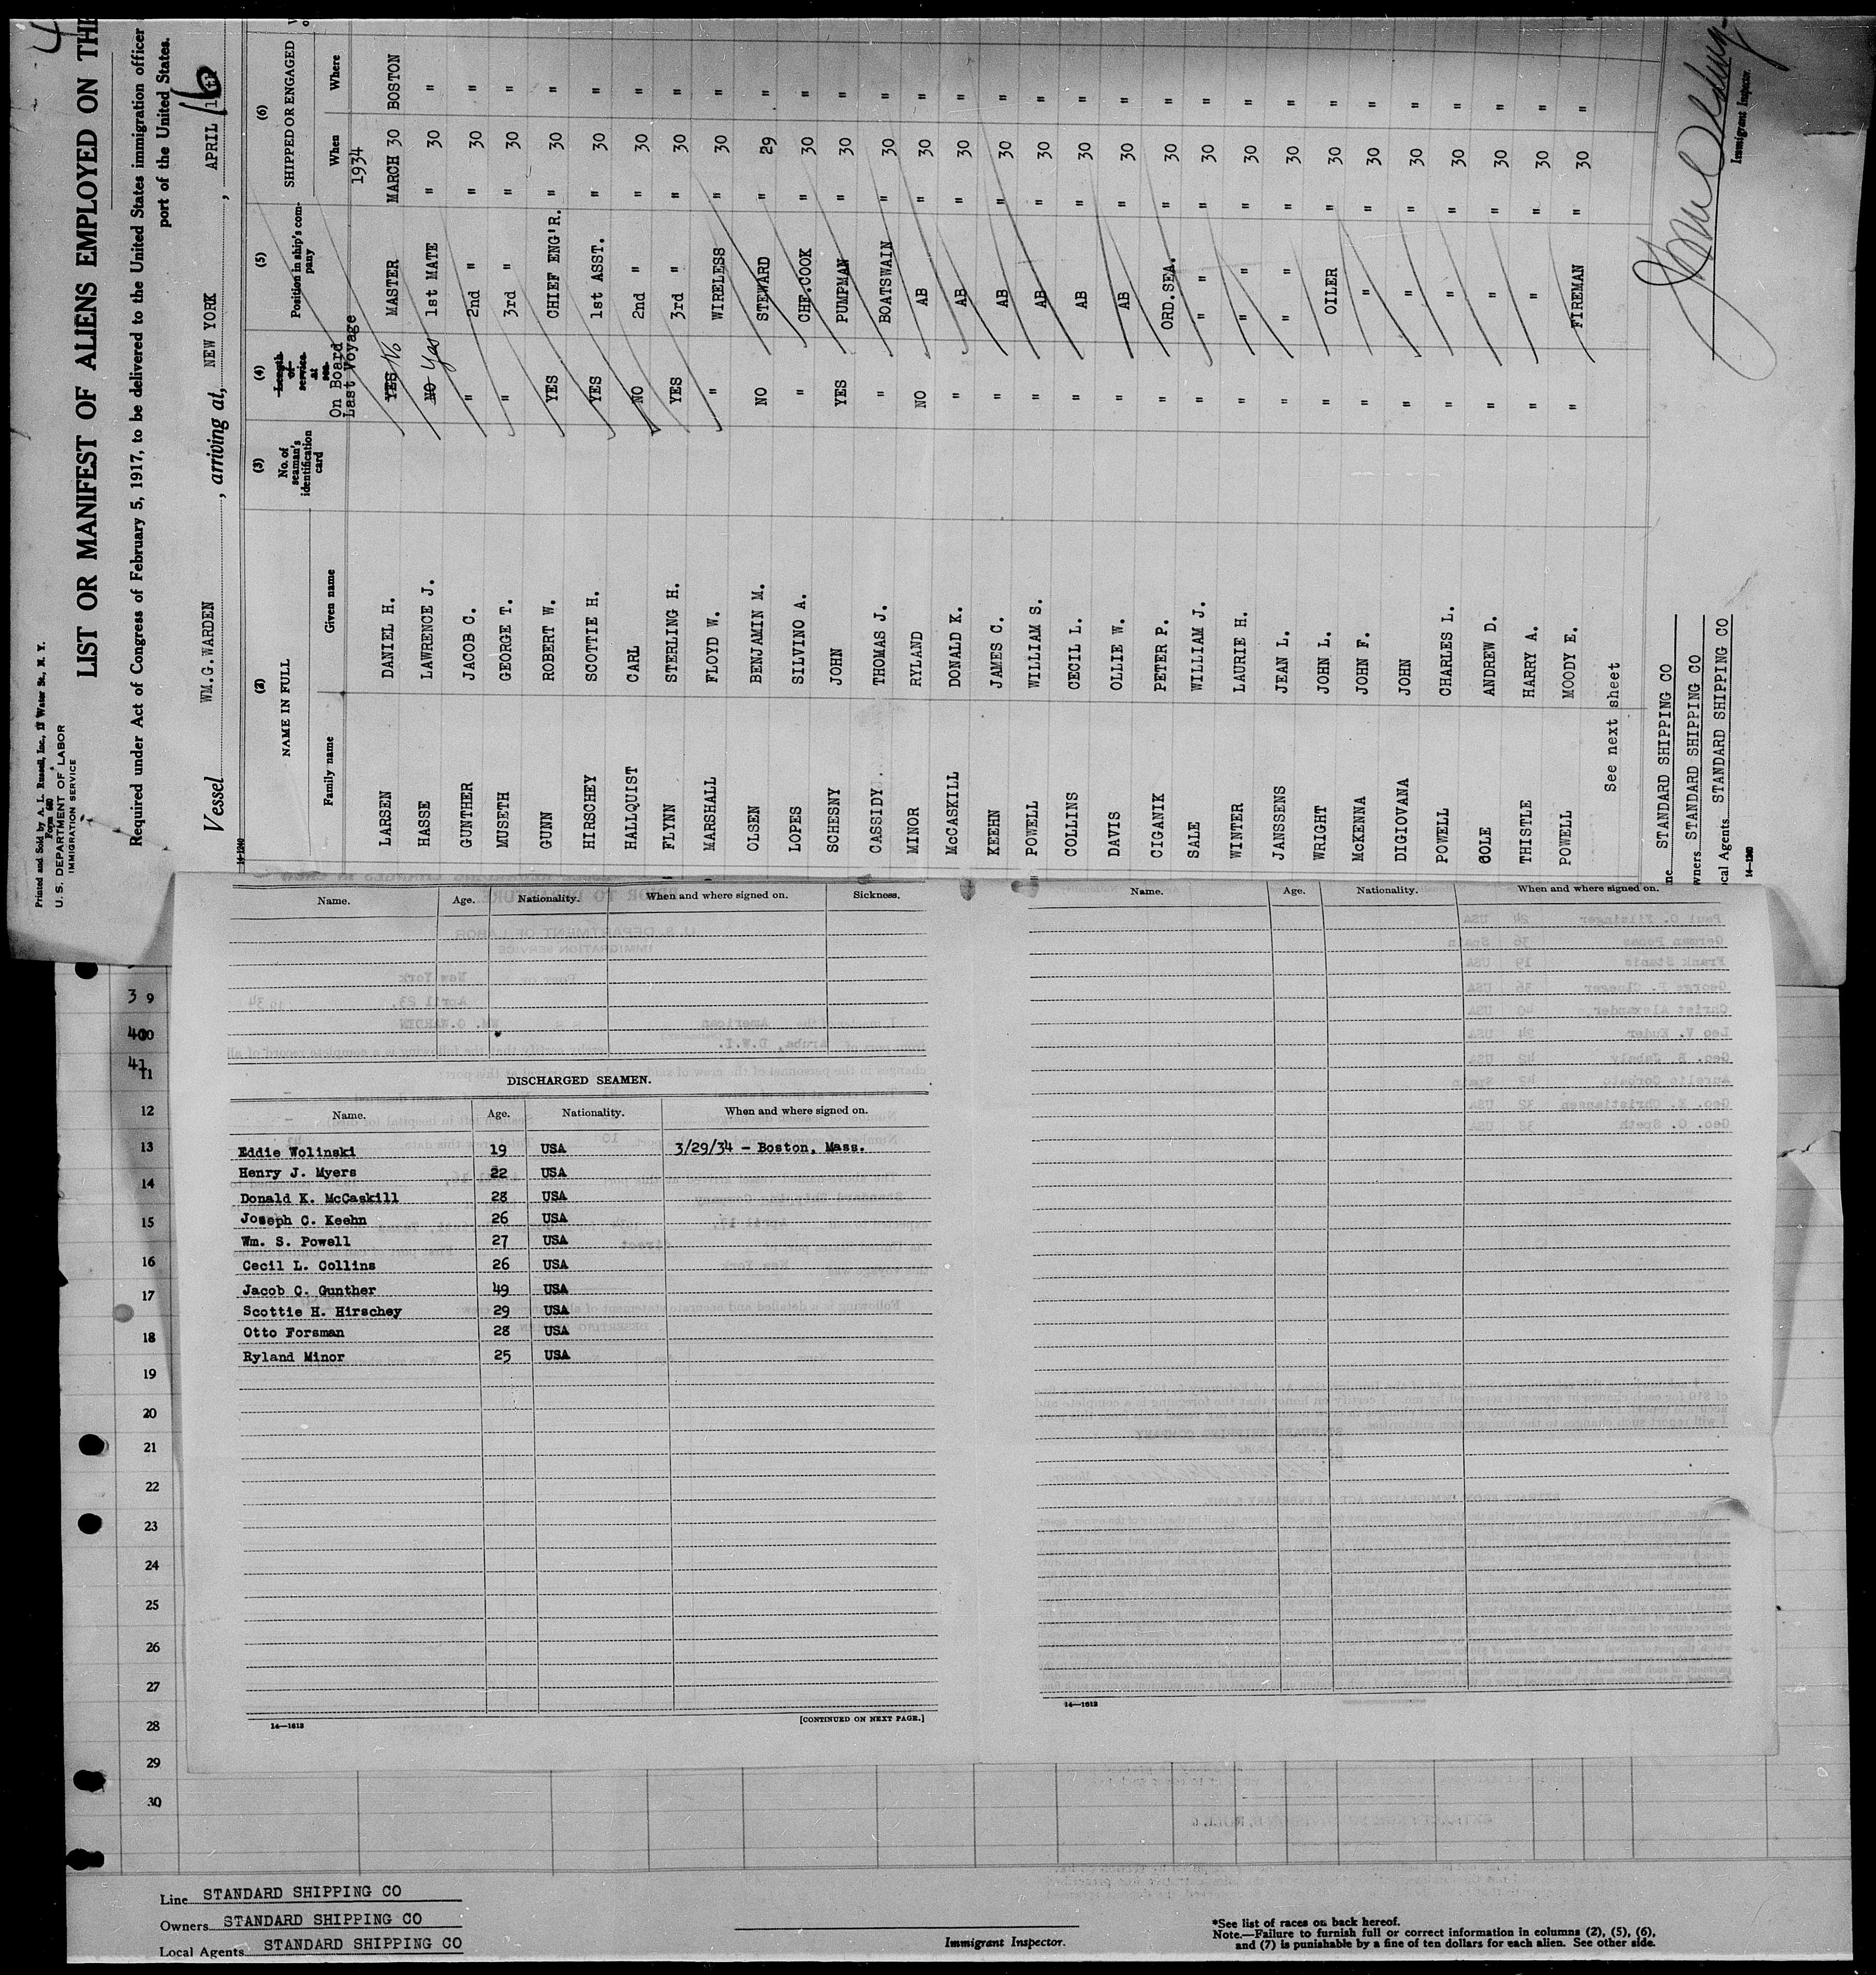 4
Printed and Sold by A. L. Russell, Inc., 17 Water St., N. Y.
Form 680
U. S. DEPARTMENT OF LABOR
IMMIGRATION SERVICE
LIST OR MANIFEST OF ALIENS EMPLOYED ON THE
Required under Act of Congress of February 5, 1917, to be delivered to the United States immigration officer
port of the United States.
Vessel WM.G.WARDEN , arriving at, NEW YORK , APRIL 16
14-1240
(2) (3) (4) (5) (6)
NAME IN FULL No. of seaman's identification card Length of service at sea Position in ship's company SHIPPED OR ENGAGED
Family name Given name On Board Last Voyage When Where
1934
LARSEN DANIEL H. YES No MASTER MARCH 30 BOSTON
HASSE LAWRENCE J. NO Yes 1st MATE " 30 "
GUNTHER JACOB C. " 2nd " " 30 "
MUSETH GEORGE T. " 3rd " " 30 "
GUNN ROBERT W. YES CHIEF ENG'R. " 30 "
HIRSCHEY SCOTTIE H. YES 1st ASST. " 30 "
HALLQUIST CARL NO 2nd " " 30 "
FLYNN STERLING H. YES 3rd " " 30 "
MARSHALL FLOYD W. " WIRELESS " 30 "
OLSEN BENJAMIN M. NO STEWARD " 29 "
LOPES SILVINO A. " CHF.COOK " 30 "
SCHESNY JOHN YES PUMPMAN " 30 "
CASSIDY THOMAS J. " BOATSWAIN " 30 "
MINOR RYLAND NO AB " 30 "
McCASKILL DONALD K. " AB " 30 "
KEEHN JAMES C. " AB " 30 "
POWELL WILLIAM S. " AB " 30 "
COLLINS CECIL L. " AB " 30 "
DAVIS OLLIE W. " AB " 30 "
CIGANIK PETER P. " ORD.SEA. " 30 "
SALE WILLIAM J. " " " " 30 "
WINTER LAURIE H. " " " " 30 "
JANSSENS JEAN L. " " " " 30 "
WRIGHT JOHN L. " OILER " 30 "
McKENNA JOHN F. " " " 30 "
DIGIOVANA JOHN " " " 30 "
POWELL CHARLES L. " " " 30 "
COLE ANDREW D. " " " 30 "
THISTLE HARRY A. " " " 30 "
POWELL MOODY E. " FIREMAN " 30 "
See next sheet
Immigrant Inspector.
STANDARD SHIPPING CO
STANDARD SHIPPING CO
STANDARD SHIPPING CO
14-1240
Name. Age. Nationality. When and where signed on. Sickness.
DISCHARGED SEAMEN.
Name. Age. Nationality. When and where signed on.
Eddie Wolinski 19 USA 3/29/34 - Boston, Mass.
Henry J. Myers 22 USA
Donald K. McCaskill 28 USA
Joseph C. Keehn 26 USA
Wm. S. Powell 27 USA
Cecil L. Collins 26 USA
Jacob C. Gunther 49 USA
Scottie H. Hirschey 29 USA
Otto Forsman 28 USA
Ryland Minor 25 USA
14-1612
[CONTINUED ON NEXT PAGE.]
Name. Age. Nationality. When and where signed on.
14-1612
39
40
41
11
12
13
14
15
16
17
18
19
20
21
22
23
24
25
26
27
28
29
30
Line STANDARD SHIPPING CO
Owners STANDARD SHIPPING CO
Local Agents STANDARD SHIPPING CO
Immigrant Inspector.
*See list of races on back hereof.
Note.—Failure to furnish full or correct information in columns (2), (5), (6),
and (7) is punishable by a fine of ten dollars for each alien. See other side.